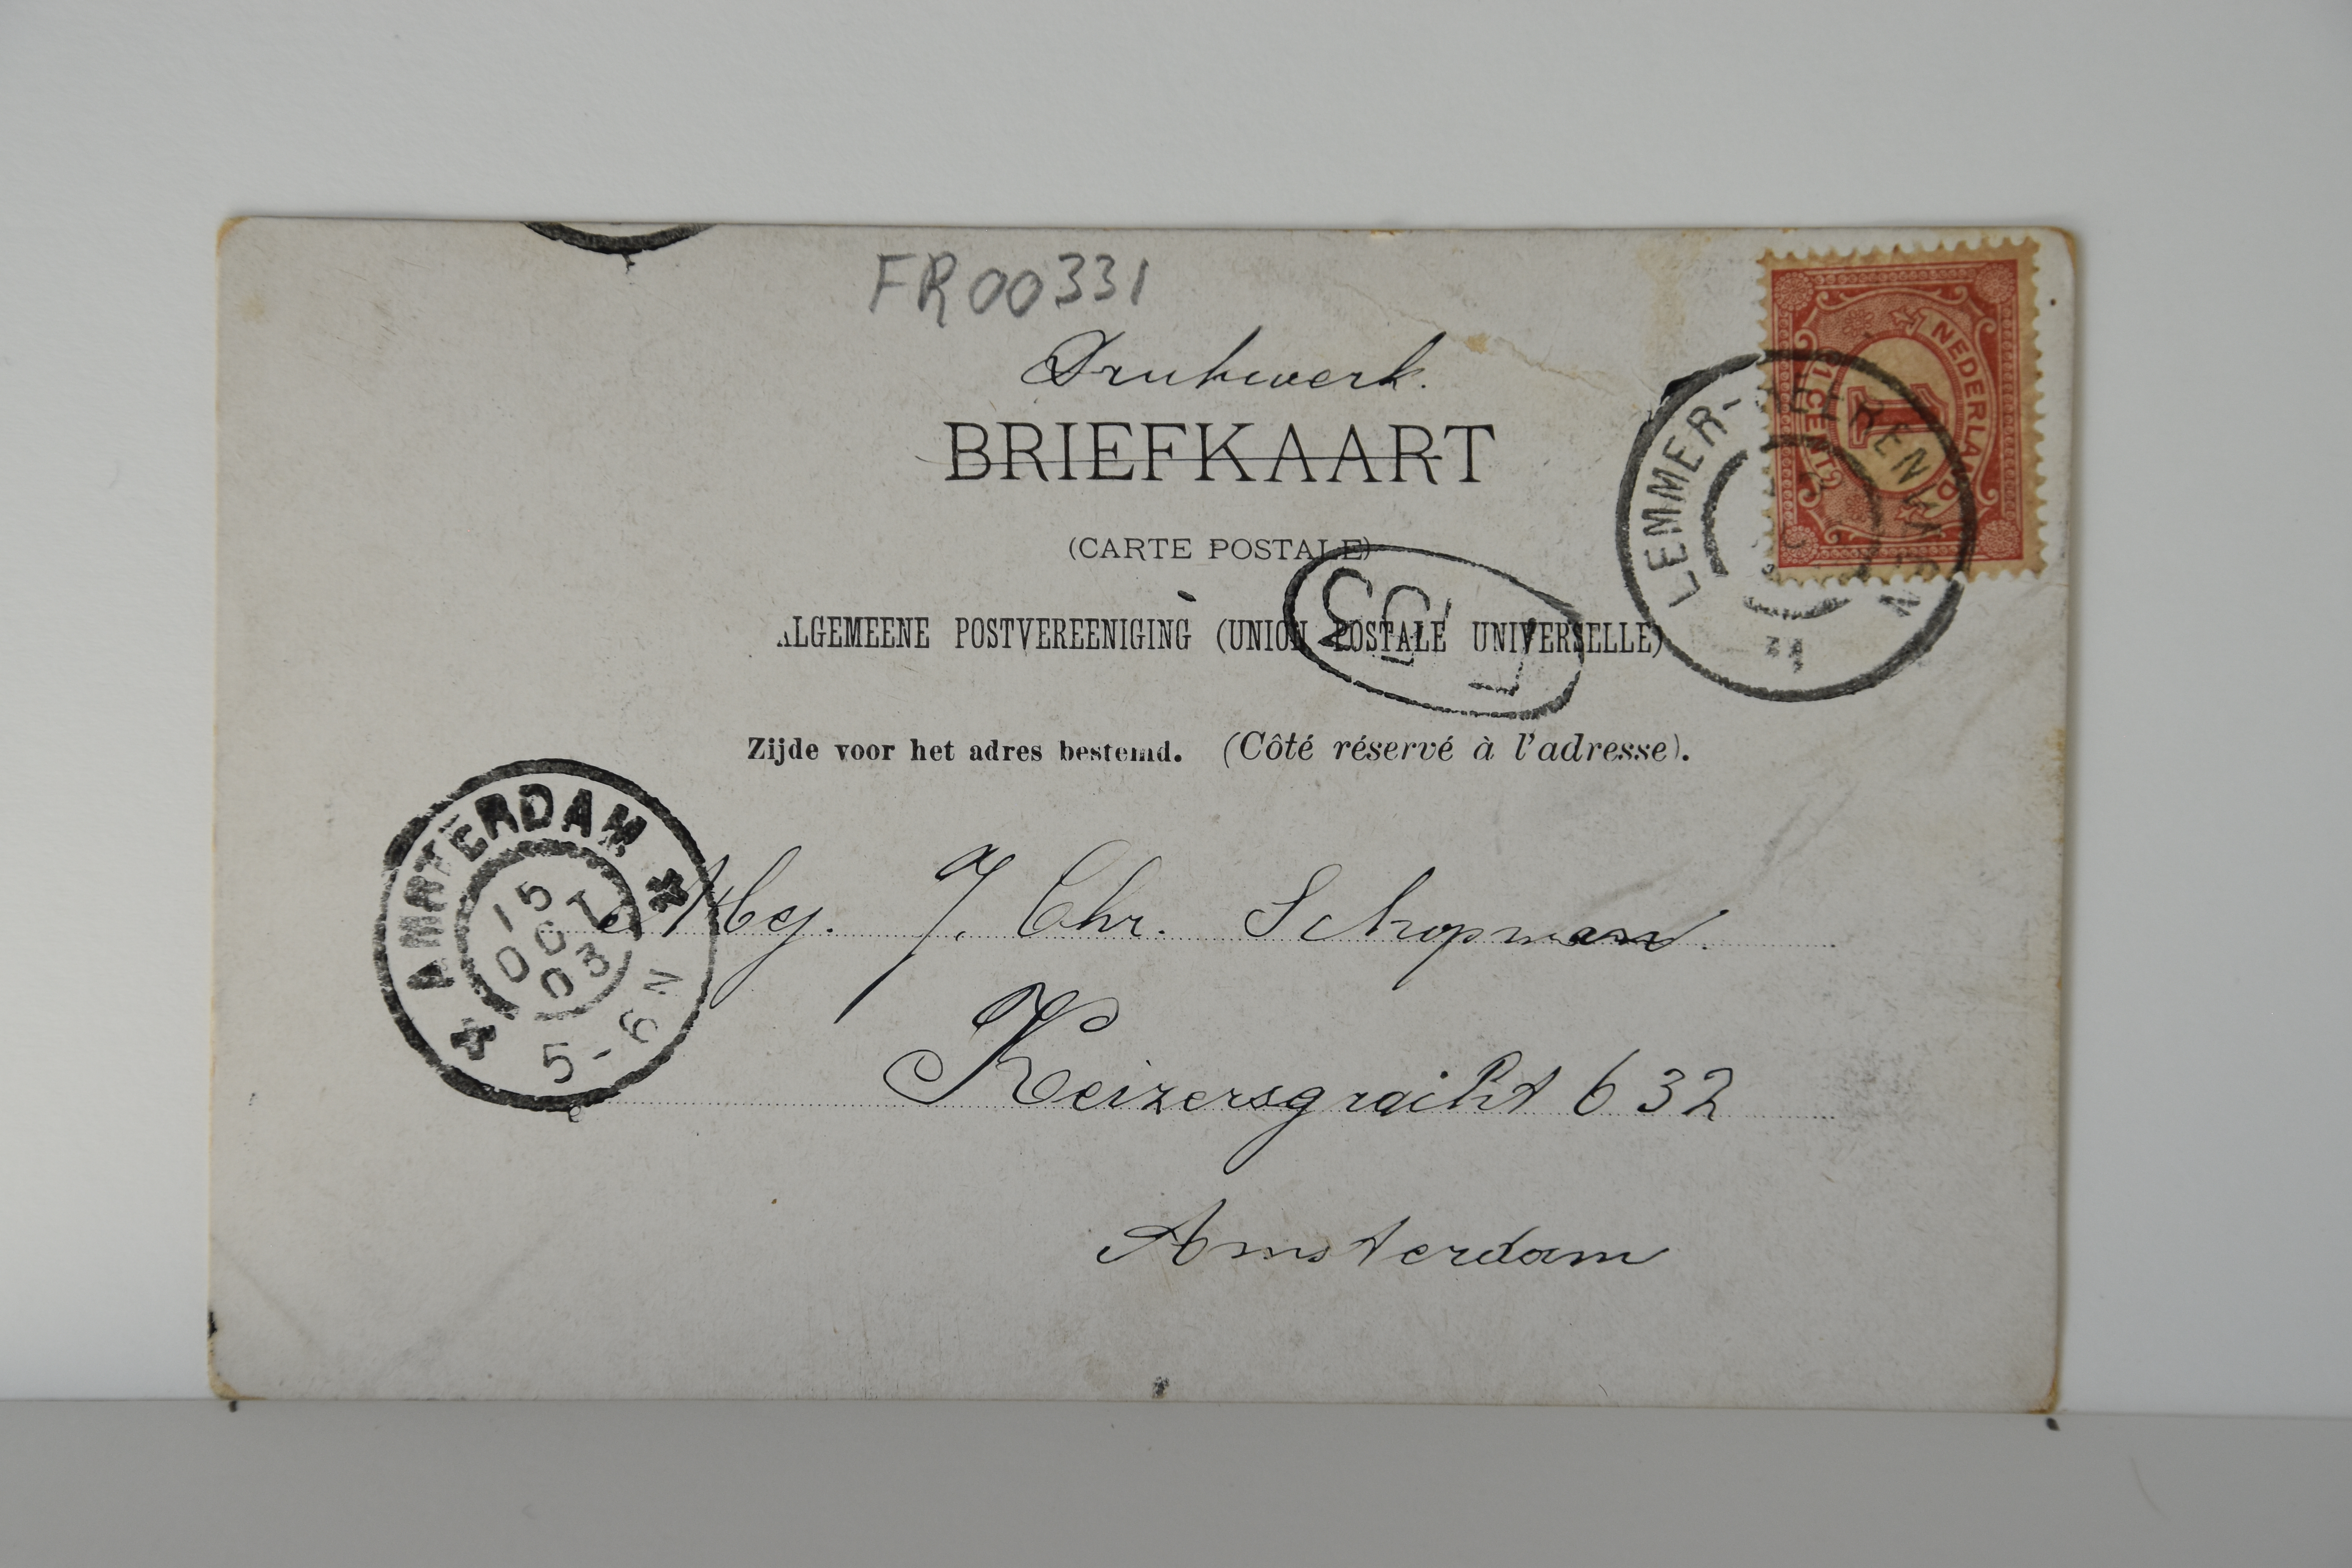 FR00331
Drukwerk.
BRIEFKAART
(CARTE POSTALE)
ALGEMEENE POSTVEREENIGING (UNION POSTALE UNIVERSELLE)
Zijde voor het adres bestemd. (Côté réservé à l'adresse).
NEDERLAND
1
1 CENT
LEMMER-HEERENVEEN
AMSTERDAM
15
OCT
03
5-6N
Mej. J. Chr. Schopman.
Keizersgracht 632
Amsterdam